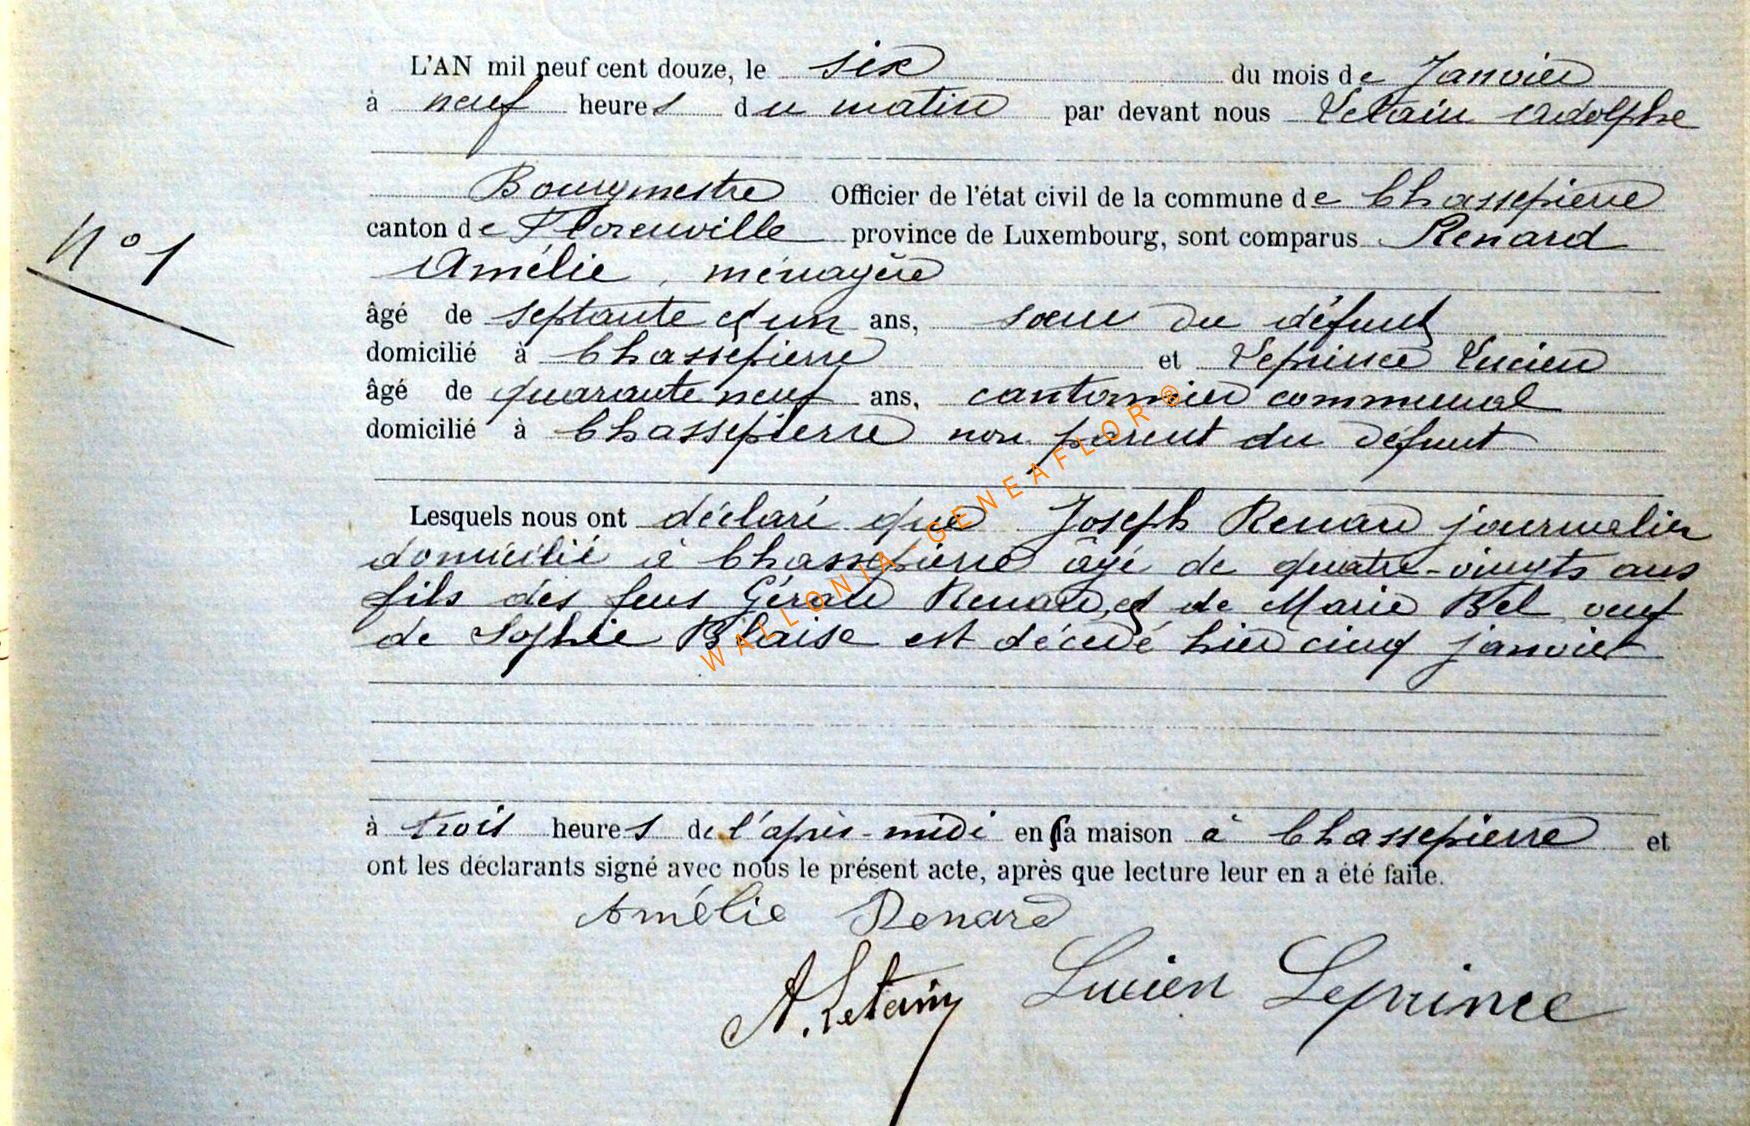 L'AN mil neuf cent douze, le six du mois de Janvier
à neuf heures du matin par devant nous Letain Adolphe
Bourgmestre Officier de l'état civil de la commune de Chassepierre
canton de Florenville province de Luxembourg, sont comparus Renard
N° 1
Amélie, ménagère
âgé de septante et un ans, sœur du défunt
domicilié à Chassepierre et Leprince Lucien
âgé de quarante neuf ans, cantonnier communal
domicilié à Chassepierre non parent du défunt
Lesquels nous ont déclaré que Joseph Renard journalier
domicilié à Chassepierre âgé de quatre-vingts ans
fils des feus Gérard Renard, et de Marie Bel veuf
de Sophie Blaise est décédé hier cinq janvier
à trois heures de l'après-midi en sa maison à Chassepierre et
ont les déclarants signé avec nous le présent acte, après que lecture leur en a été faite.
Amélie Renard
A. Letain Lucien Leprince
WALLONIA-GENEAFLOR ®